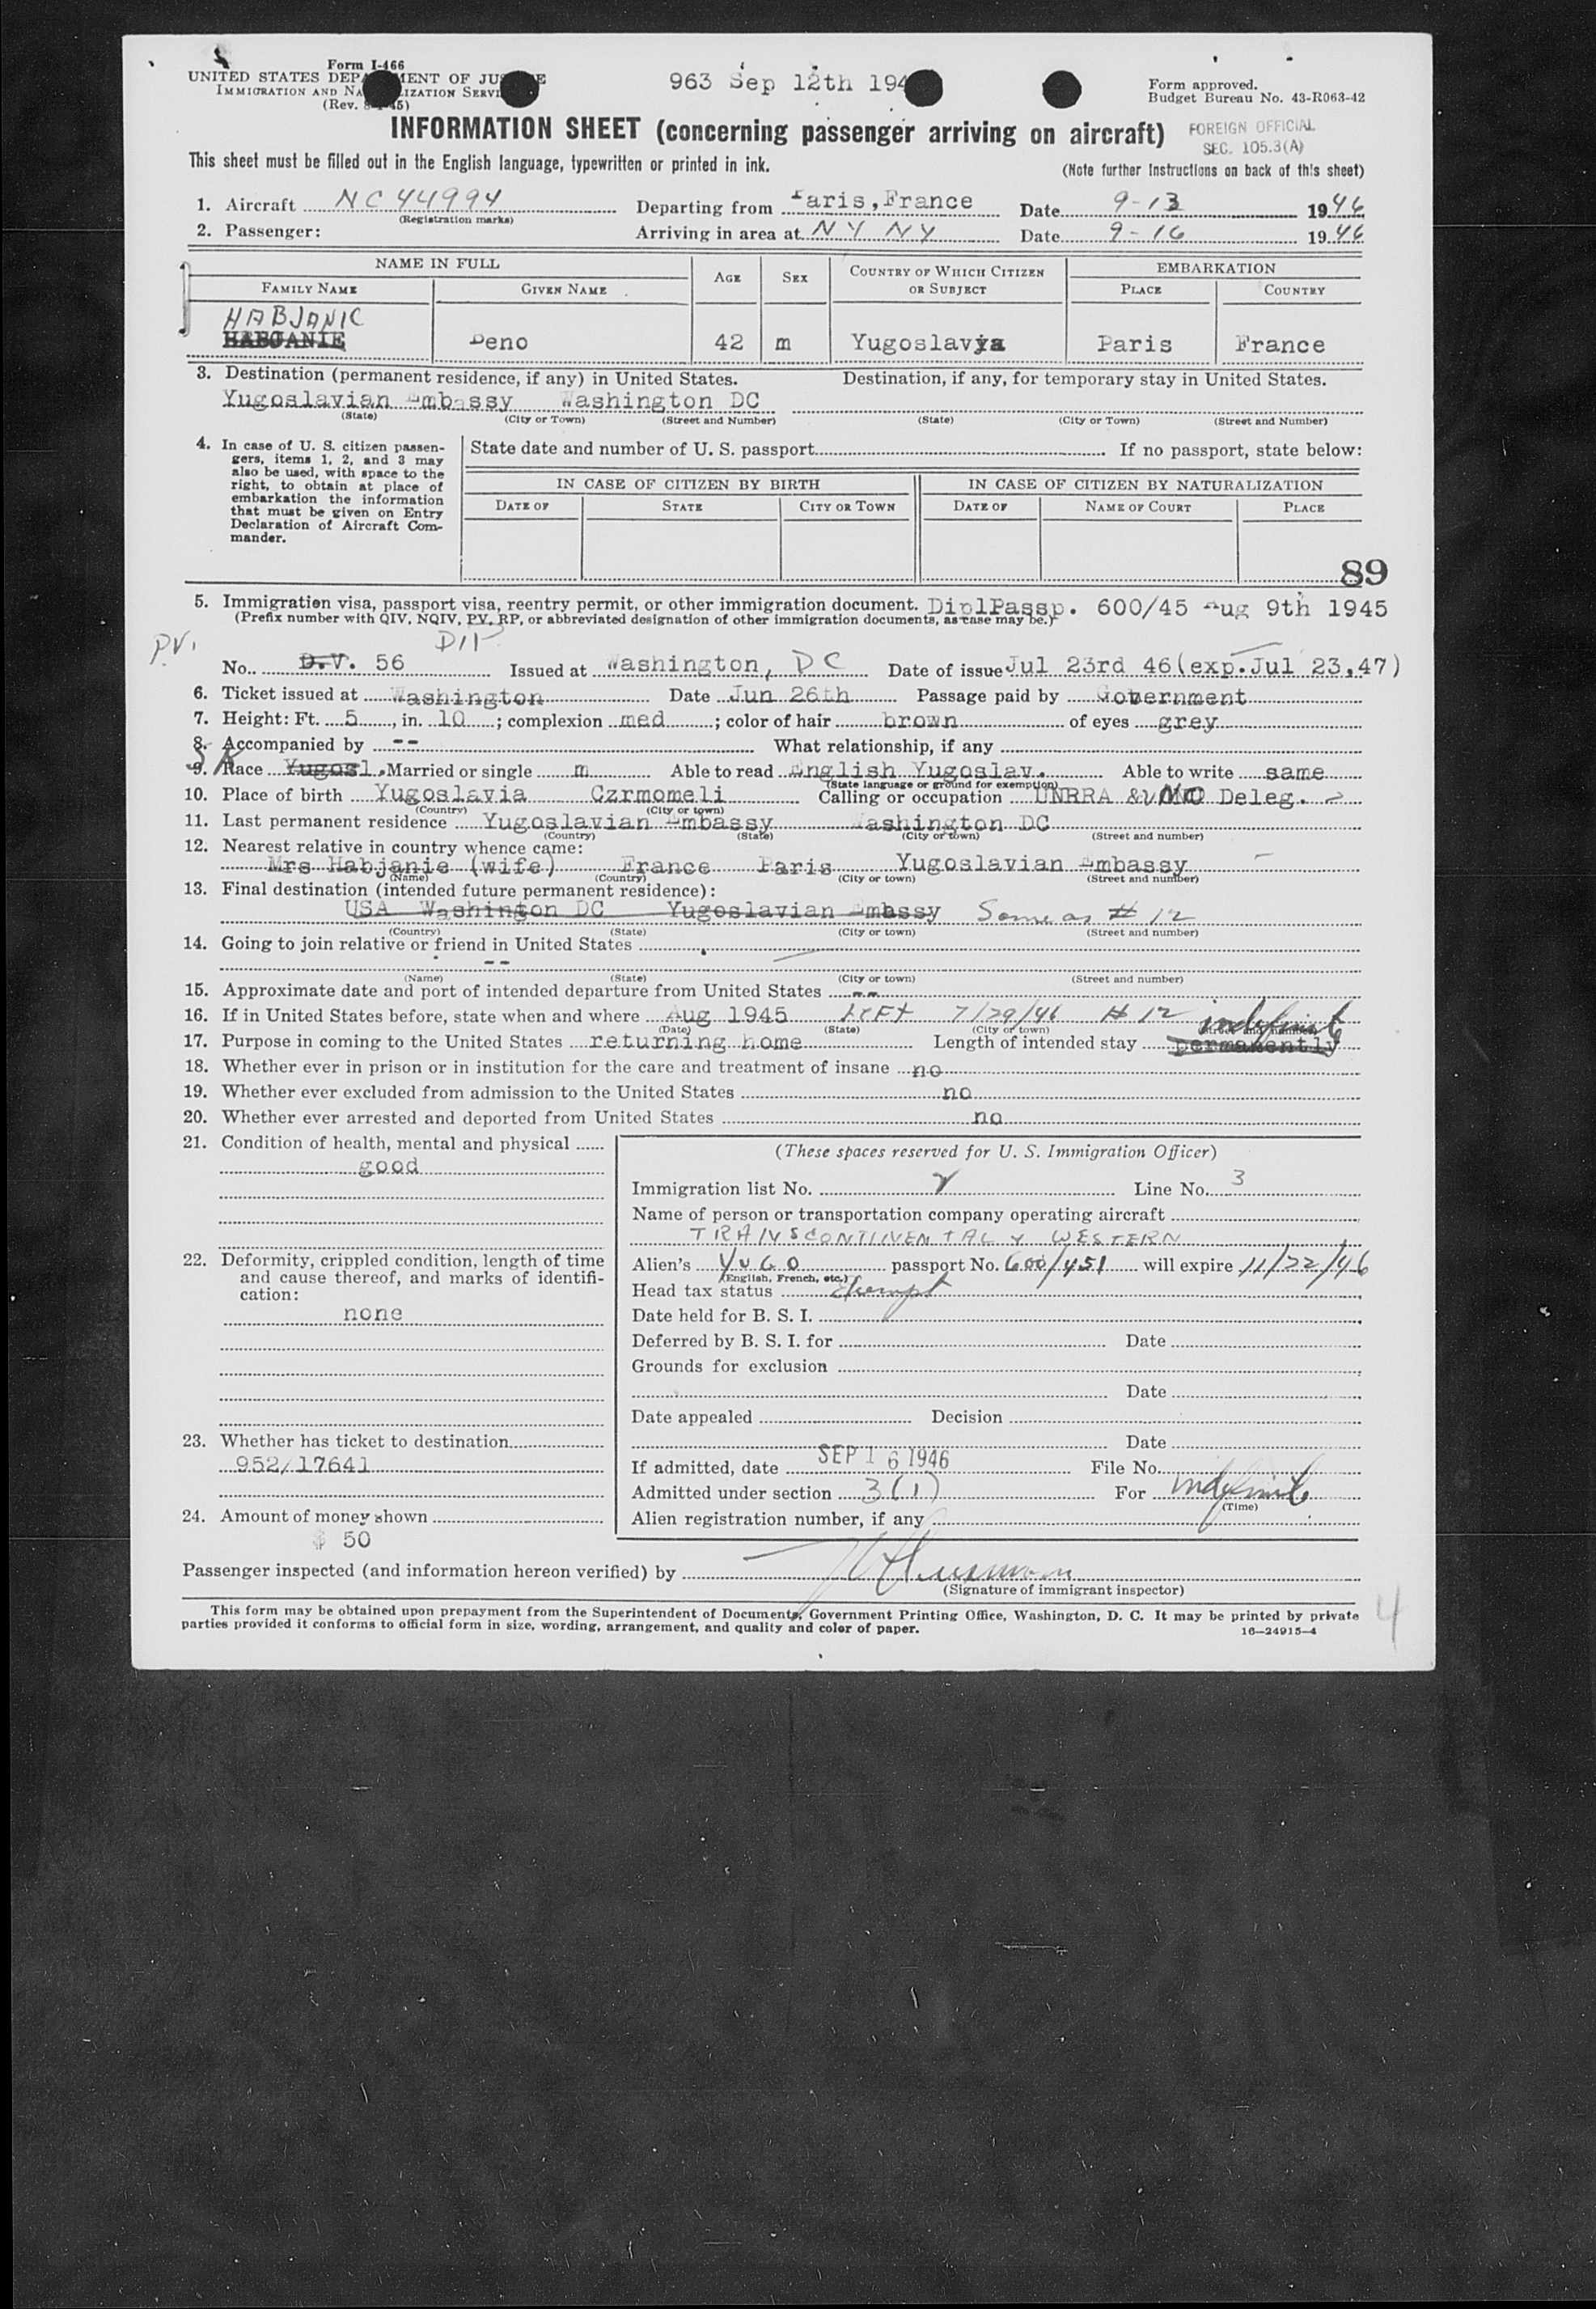 Form I-466
UNITED STATES DEPARTMENT OF JUSTICE
IMMIGRATION AND NATURALIZATION SERVICE
(Rev. 8-1-45)
963 Sep 12th 194
Form approved.
Budget Bureau No. 43-R063-42
INFORMATION SHEET (concerning passenger arriving on aircraft)
FOREIGN OFFICIAL
SEC. 105.3(A)
This sheet must be filled out in the English language, typewritten or printed in ink.
(Note further instructions on back of this sheet)
1. Aircraft NC 44994 Departing from Paris, France Date 9-13 1946
(Registration marks)
2. Passenger: Arriving in area at NY NY Date 9-16 1946
NAME IN FULL AGE SEX COUNTRY OF WHICH CITIZEN OR SUBJECT EMBARKATION
FAMILY NAME GIVEN NAME PLACE COUNTRY
HABJANIC
HABJANIE Peno 42 m Yugoslavia Paris France
3. Destination (permanent residence, if any) in United States. Destination, if any, for temporary stay in United States.
Yugoslavian Embassy Washington DC
(State) (City or Town) (Street and Number) (State) (City or Town) (Street and Number)
4. In case of U. S. citizen passengers, items 1, 2, and 3 may also be used, with space to the right, to obtain at place of embarkation the information that must be given on Entry Declaration of Aircraft Commander.
State date and number of U. S. passport If no passport, state below:
IN CASE OF CITIZEN BY BIRTH IN CASE OF CITIZEN BY NATURALIZATION
DATE OF STATE CITY OR TOWN DATE OF NAME OF COURT PLACE
89
5. Immigration visa, passport visa, reentry permit, or other immigration document. DiplPassp. 600/45 Aug 9th 1945
(Prefix number with QIV, NQIV, PV, RP, or abbreviated designation of other immigration documents, as case may be.)
P.V. DIP
No. D.V. 56 Issued at Washington, DC Date of issue Jul 23rd 46 (exp. Jul 23, 47)
6. Ticket issued at Washington Date Jun 26th Passage paid by Government
7. Height: Ft. 5, in. 10; complexion med; color of hair brown of eyes grey
8. Accompanied by -- What relationship, if any
9. Race Yugosl. Married or single m Able to read English Yugoslav. Able to write same
(State language or ground for exemption)
10. Place of birth Yugoslavia Czrmomeli Calling or occupation UNRRA & Deleg.
(Country) (City or town)
11. Last permanent residence Yugoslavian Embassy Washington DC
(Country) (State) (City or town) (Street and number)
12. Nearest relative in country whence came:
Mrs Habjanie (wife) France Paris Yugoslavian Embassy
(Name) (Country) (City or town) (Street and number)
13. Final destination (intended future permanent residence):
USA Washington DC Yugoslavian Embassy Same as # 12
(Country) (State) (City or town) (Street and number)
14. Going to join relative or friend in United States
--
(Name) (State) (City or town) (Street and number)
15. Approximate date and port of intended departure from United States --
16. If in United States before, state when and where Aug 1945 LEFT 7/29/46 # 12
(Date) (State) (City or town) (Street and number)
indefinite
17. Purpose in coming to the United States returning home Length of intended stay permanently
18. Whether ever in prison or in institution for the care and treatment of insane no
19. Whether ever excluded from admission to the United States no
20. Whether ever arrested and deported from United States no
21. Condition of health, mental and physical
good
22. Deformity, crippled condition, length of time and cause thereof, and marks of identification:
none
23. Whether has ticket to destination
952/17641
24. Amount of money shown
$ 50
(These spaces reserved for U. S. Immigration Officer)
Immigration list No. Line No. 3
Name of person or transportation company operating aircraft
TRANSCONTINENTAL Y WESTERN
Alien's YUGO passport No. 600/451 will expire 11/22/46
(English, French, etc.)
Head tax status Exempt
Date held for B. S. I.
Deferred by B. S. I. for Date
Grounds for exclusion
Date
Date appealed Decision
Date
If admitted, date SEP 16 1946 File No.
Admitted under section 3(1) For indefinite
(Time)
Alien registration number, if any
Passenger inspected (and information hereon verified) by
(Signature of immigrant inspector)
This form may be obtained upon prepayment from the Superintendent of Documents, Government Printing Office, Washington, D. C. It may be printed by private
parties provided it conforms to official form in size, wording, arrangement, and quality and color of paper.
16—24915-4
4